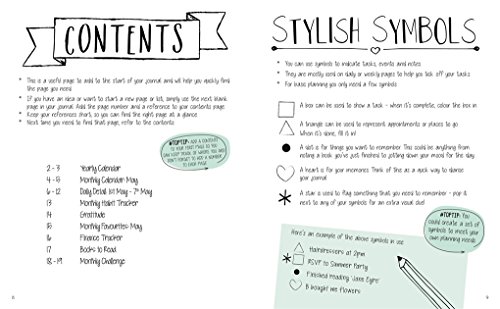 CONTENTS
* This is a useful page to add to the start of your journal and will help you quickly find
the page you need
* If you have an idea or want to start a new page or list, simply use the next blank
page in your journal. Add the page number and a reference to your contents page.
* Keep your references short, so you can find the right page at a glance
* Next time you need to find that page, refer to the contents
#TOPTIP: ADD A CONTENTS
TO YOUR FIRST PAGE SO YOU
CAN KEEP TRACK OF WHERE YOU ARE
DON'T FORGET TO ADD A NUMBER
TO EACH PAGE
2 - 3 Yearly Calendar
4 - 5 Monthly Calendar May
6 - 12 Daily Detail 1st May - 7th May
13 Monthly Habit Tracker
14 Gratitude
15 Monthly Favourites May
16 Finance Tracker
17 Books to Read
18 - 19 Monthly Challenge
8
STYLISH SYMBOLS
* You can use symbols to indicate tasks, events and notes
* They are mostly used on daily or weekly pages to help you tick off your tasks
* For basic planning you only need a few symbols
A box can be used to show a task - when it's complete, colour the box in
A triangle can be used to represent appointments or places to go
When it's done, fill it in!
A dot is for things you want to remember. This could be anything from
noting a book you've just finished to jotting down your mood for the day.
A heart is for your memories. Think of this as a quick way to diarise
your journal
A star is used to flag something that you need to remember - pop it
next to any of your symbols for an extra visual clue!
#TOPTIP: You
could create a set of
symbols to meet your
own planning needs
Here's an example of the above symbols in use
Hairdressers at 2pm
RSVP to Summer Party
Finished reading 'Jane Eyre'
B bought me flowers
9